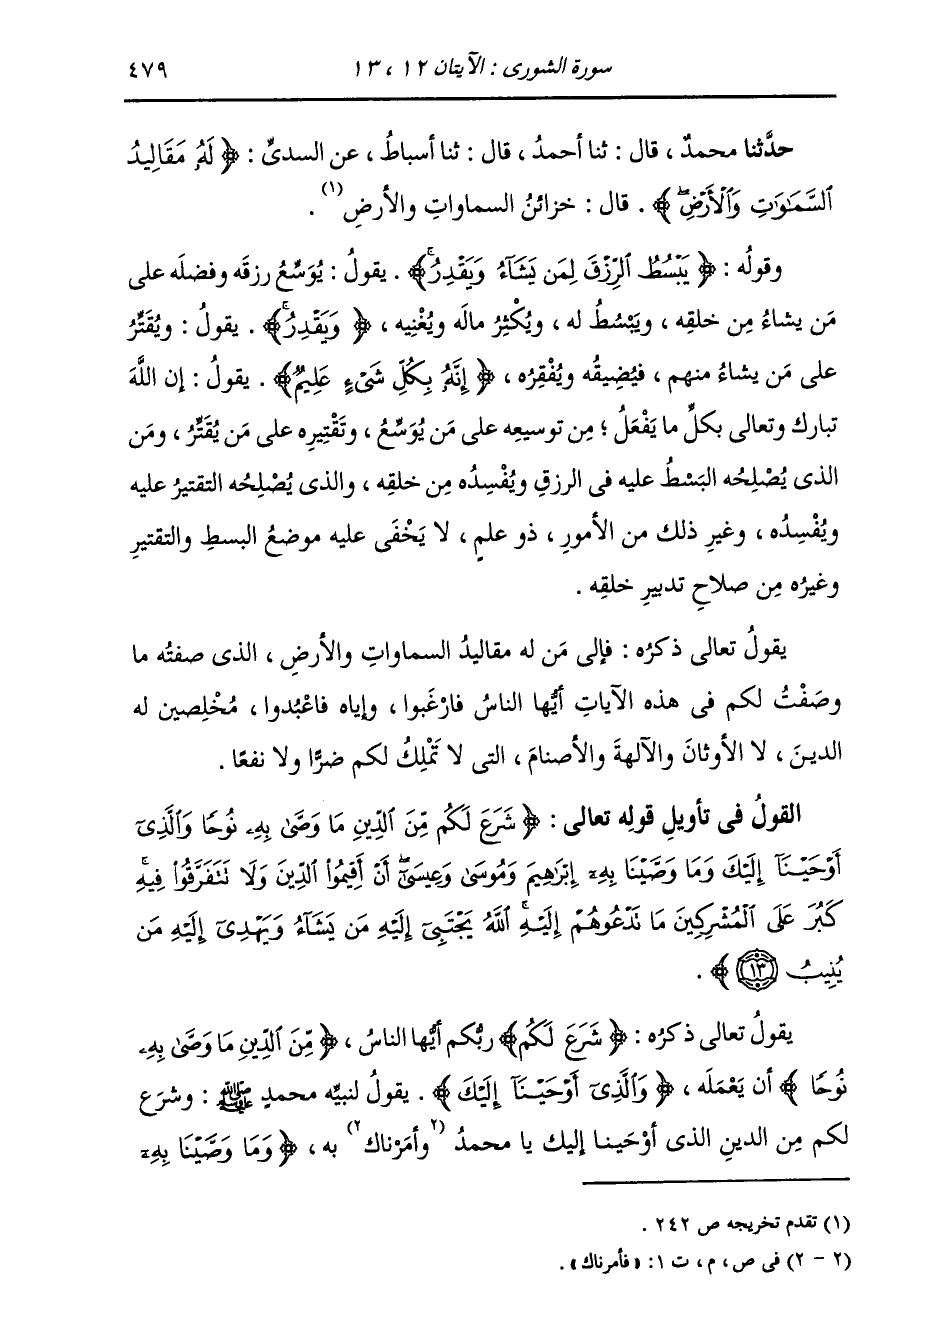 سورة الشورى : الآيتان ١٢ ، ١٣ ٤٧٩
حدَّثنا محمدٌ ، قال : ثنا أحمدُ ، قال : ثنا أسباطُ ، عن السدىِّ : ﴿ لَهُۥ مَقَالِيدُ
ٱلسَّمَٰوَٰتِ وَٱلْأَرْضِۖ ﴾ . قال : خزائنُ السماواتِ والأرضِ(١) .
وقولُه : ﴿ يَبْسُطُ ٱلرِّزْقَ لِمَن يَشَآءُ وَيَقْدِرُۚ ﴾ . يقولُ : يُوَسِّعُ رزقَه وفضلَه على
مَن يشاءُ مِن خلقِه ، ويَبْسُطُ له ، ويُكْثِرُ مالَه ويُغْنِيه ، ﴿ وَيَقْدِرُۚ ﴾ . يقولُ : ويُقَتِّرُ
على مَن يشاءُ منهم ، فيُضِيقُه ويُفْقِرُه ، ﴿ إِنَّهُۥ بِكُلِّ شَىْءٍ عَلِيمٌ ﴾ . يقولُ : إن اللَّهَ
تبارك وتعالى بكلِّ ما يَفْعَلُ ؛ مِن توسيعِه على مَن يُوَسِّعُ ، وتَقْتِيرِه على مَن يُقَتِّرُ ، ومَن
الذى يُصْلِحُه البَسْطُ عليه فى الرزقِ ويُفْسِدُه مِن خلقِه ، والذى يُصْلِحُه التقتيرُ عليه
ويُفْسِدُه ، وغيرِ ذلك من الأمورِ ، ذو علمٍ ، لا يَخْفَى عليه موضعُ البسطِ والتقتيرِ
وغيرُه مِن صلاحِ تدبيرِ خلقِه .
يقولُ تعالى ذكرُه : فإلى مَن له مقاليدُ السماواتِ والأرضِ ، الذى صفتُه ما
وصَفْتُ لكم فى هذه الآياتِ أيُّها الناسُ فارْغَبوا ، وإياه فاعْبُدوا ، مُخْلِصين له
الدينَ ، لا الأوثانَ والآلهةَ والأصنامَ ، التى لا تَمْلِكُ لكم ضرًّا ولا نفعًا .
القولُ فى تأويلِ قولِه تعالى : ﴿ شَرَعَ لَكُم مِّنَ ٱلدِّينِ مَا وَصَّىٰ بِهِۦ نُوحًا وَٱلَّذِىٓ
أَوْحَيْنَآ إِلَيْكَ وَمَا وَصَّيْنَا بِهِۦٓ إِبْرَٰهِيمَ وَمُوسَىٰ وَعِيسَىٰٓۖ أَنْ أَقِيمُوا۟ ٱلدِّينَ وَلَا تَتَفَرَّقُوا۟ فِيهِۚ
كَبُرَ عَلَى ٱلْمُشْرِكِينَ مَا تَدْعُوهُمْ إِلَيْهِۚ ٱللَّهُ يَجْتَبِىٓ إِلَيْهِ مَن يَشَآءُ وَيَهْدِىٓ إِلَيْهِ مَن
يُنِيبُ ١٣ ﴾ .
يقولُ تعالى ذكرُه : ﴿ شَرَعَ لَكُم ﴾ ربُّكم أيُّها الناسُ ، ﴿ مِّنَ ٱلدِّينِ مَا وَصَّىٰ بِهِۦ
نُوحًا ﴾ أن يَعْمَلَه ، ﴿ وَٱلَّذِىٓ أَوْحَيْنَآ إِلَيْكَ ﴾ . يقولُ لنبيِّه محمدٍ ﷺ : وشرَع
لكم مِن الدينِ الذى أوْحَينا إليك يا محمدُ (٢وأمَرْناك٢) به ، ﴿ وَمَا وَصَّيْنَا بِهِۦٓ
(١) تقدم تخريجه ص ٢٤٢ .
(٢ - ٢) فى ص ، م ، ت ١ : « فأمرناك » .